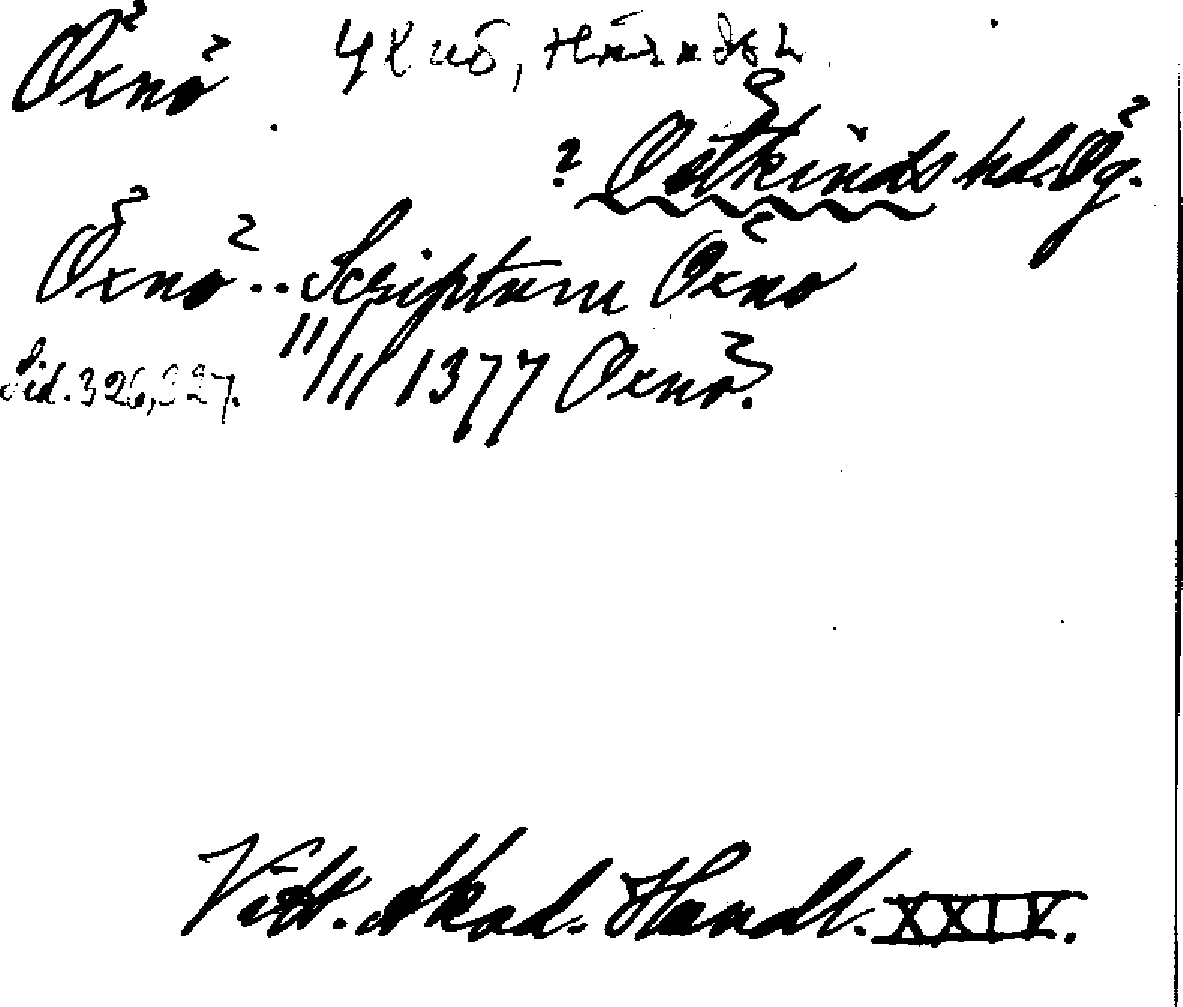 Öxnö Yxnö, Häradsh
? Östkinds hd. Ög.
Öxnö .. Scriptum Öxno
Sid. 326, 327. 11/11 1377 Oxnö.
Vitt. Akad. Handl. XXIV.